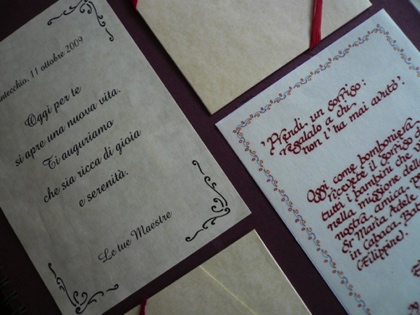 ntecchio, 11 ottobre 2009
Oggi per te
si apre una nuova vita.
Ti auguriamo
che sia ricca di gioia
e serenità.
Le tue Maestre
"Prendi un sorriso:
regalalo a chi
non l'ha mai avuto".
Oggi, come bomboniera
ricevete il sorriso di
tutti i bambini che
nella missione della
nostra amica, 
Sr Maria Adele
in Caraca,
Filippine)